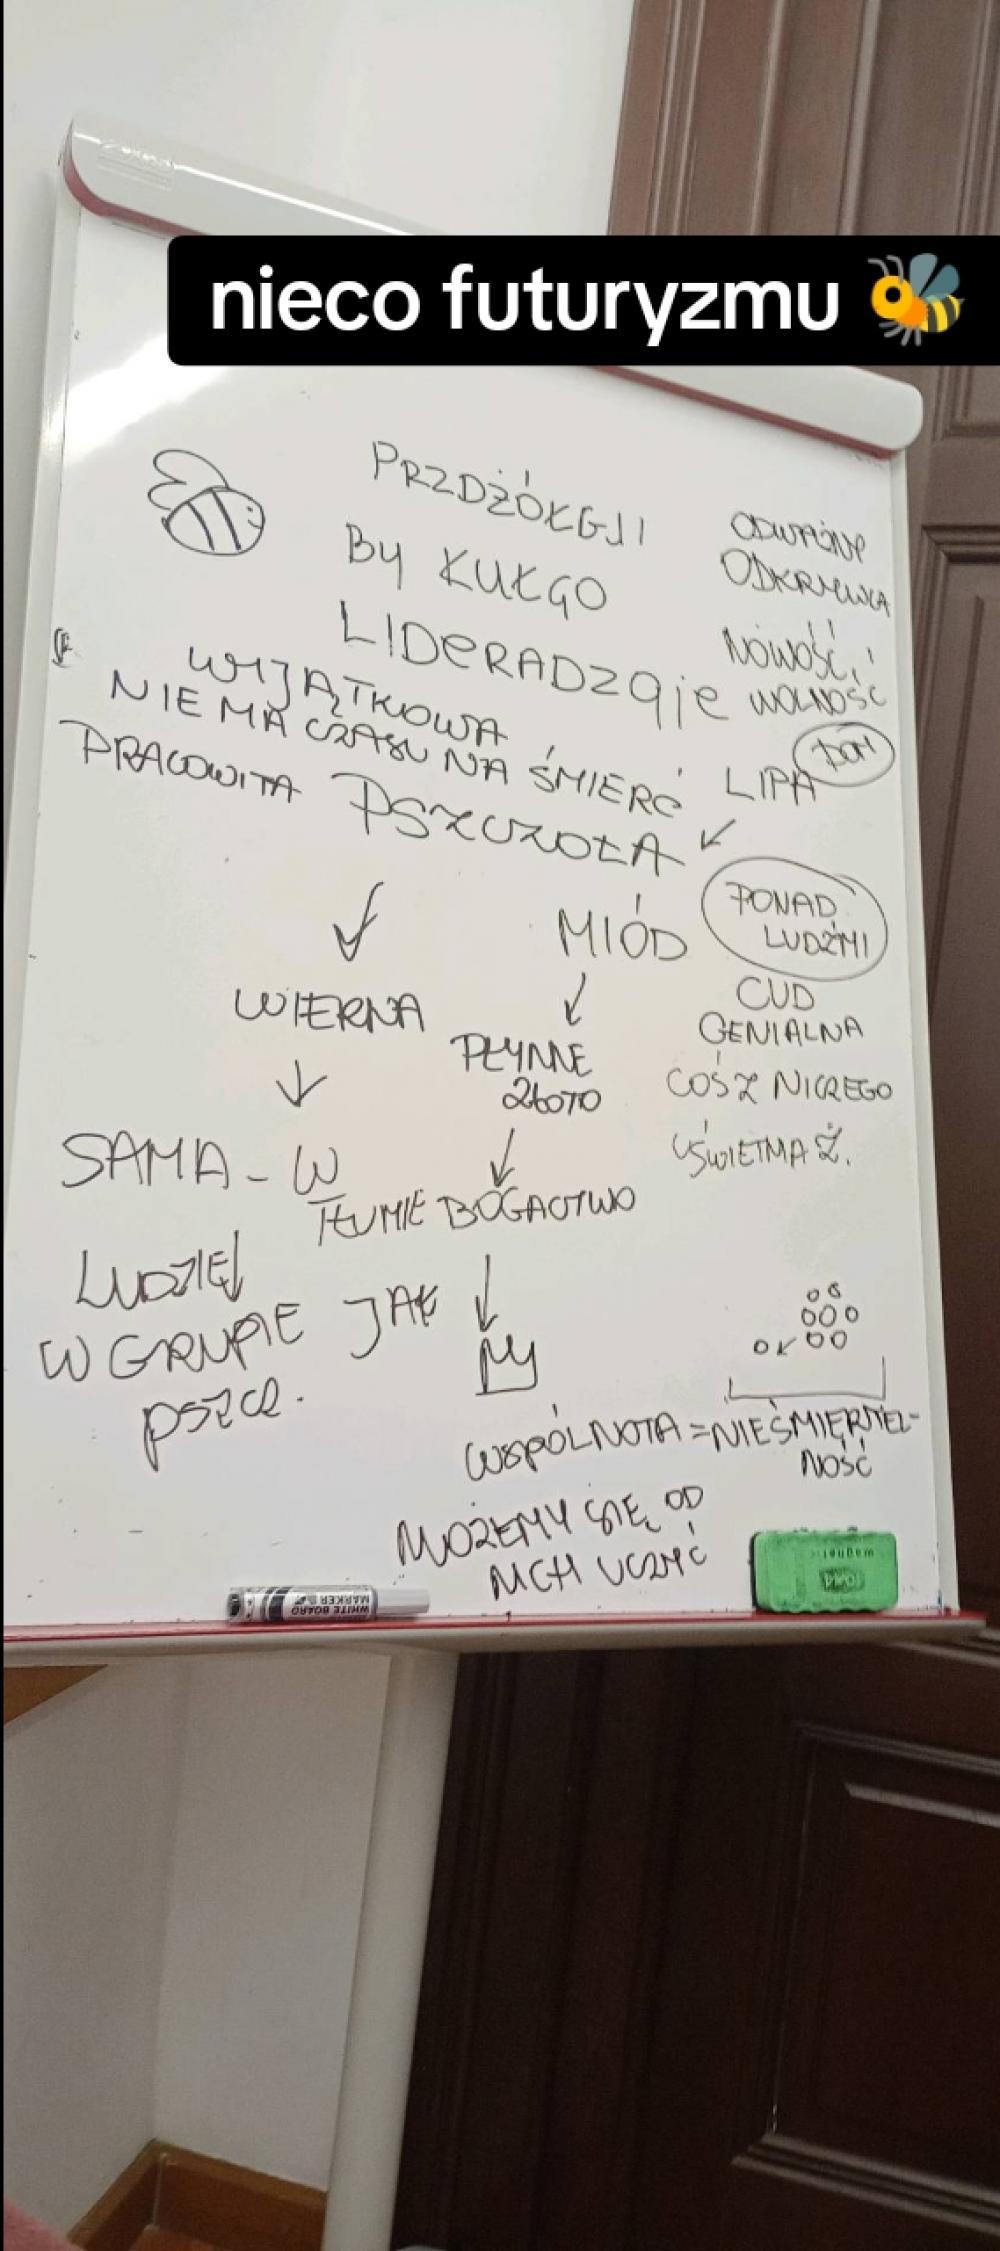 nieco futuryzmu 🐝
PRZDŻÓŁGJI
By KUŁGO
LIDERADZGJE
ODWAŻNA
ODKRYWCA
NOWOŚĆ,
WOLNOŚĆ
WYJĄTKOWA
NIE MA CZASU NA ŚMIERĆ
PRACOWITA PSZCZOŁA
LIPA
DOM
PONAD
LUDŹMI
MIÓD
WIERNA
PŁYNNE
ZŁOTO
CUD
GENIALNA
COŚ Z NICZEGO
UŚWIETMA Ż.
SAMA - W
TŁUMIE
BOGACTWO
LUDZIE
W GRUPIE JAK
PSZCZ.
MY
WSPÓLNOTA = NIEŚMIERTEL-
NOŚĆ
MOŻEMY SIĘ OD
NICH UCZYĆ
WHITE BOARD
MARKER
magnetic